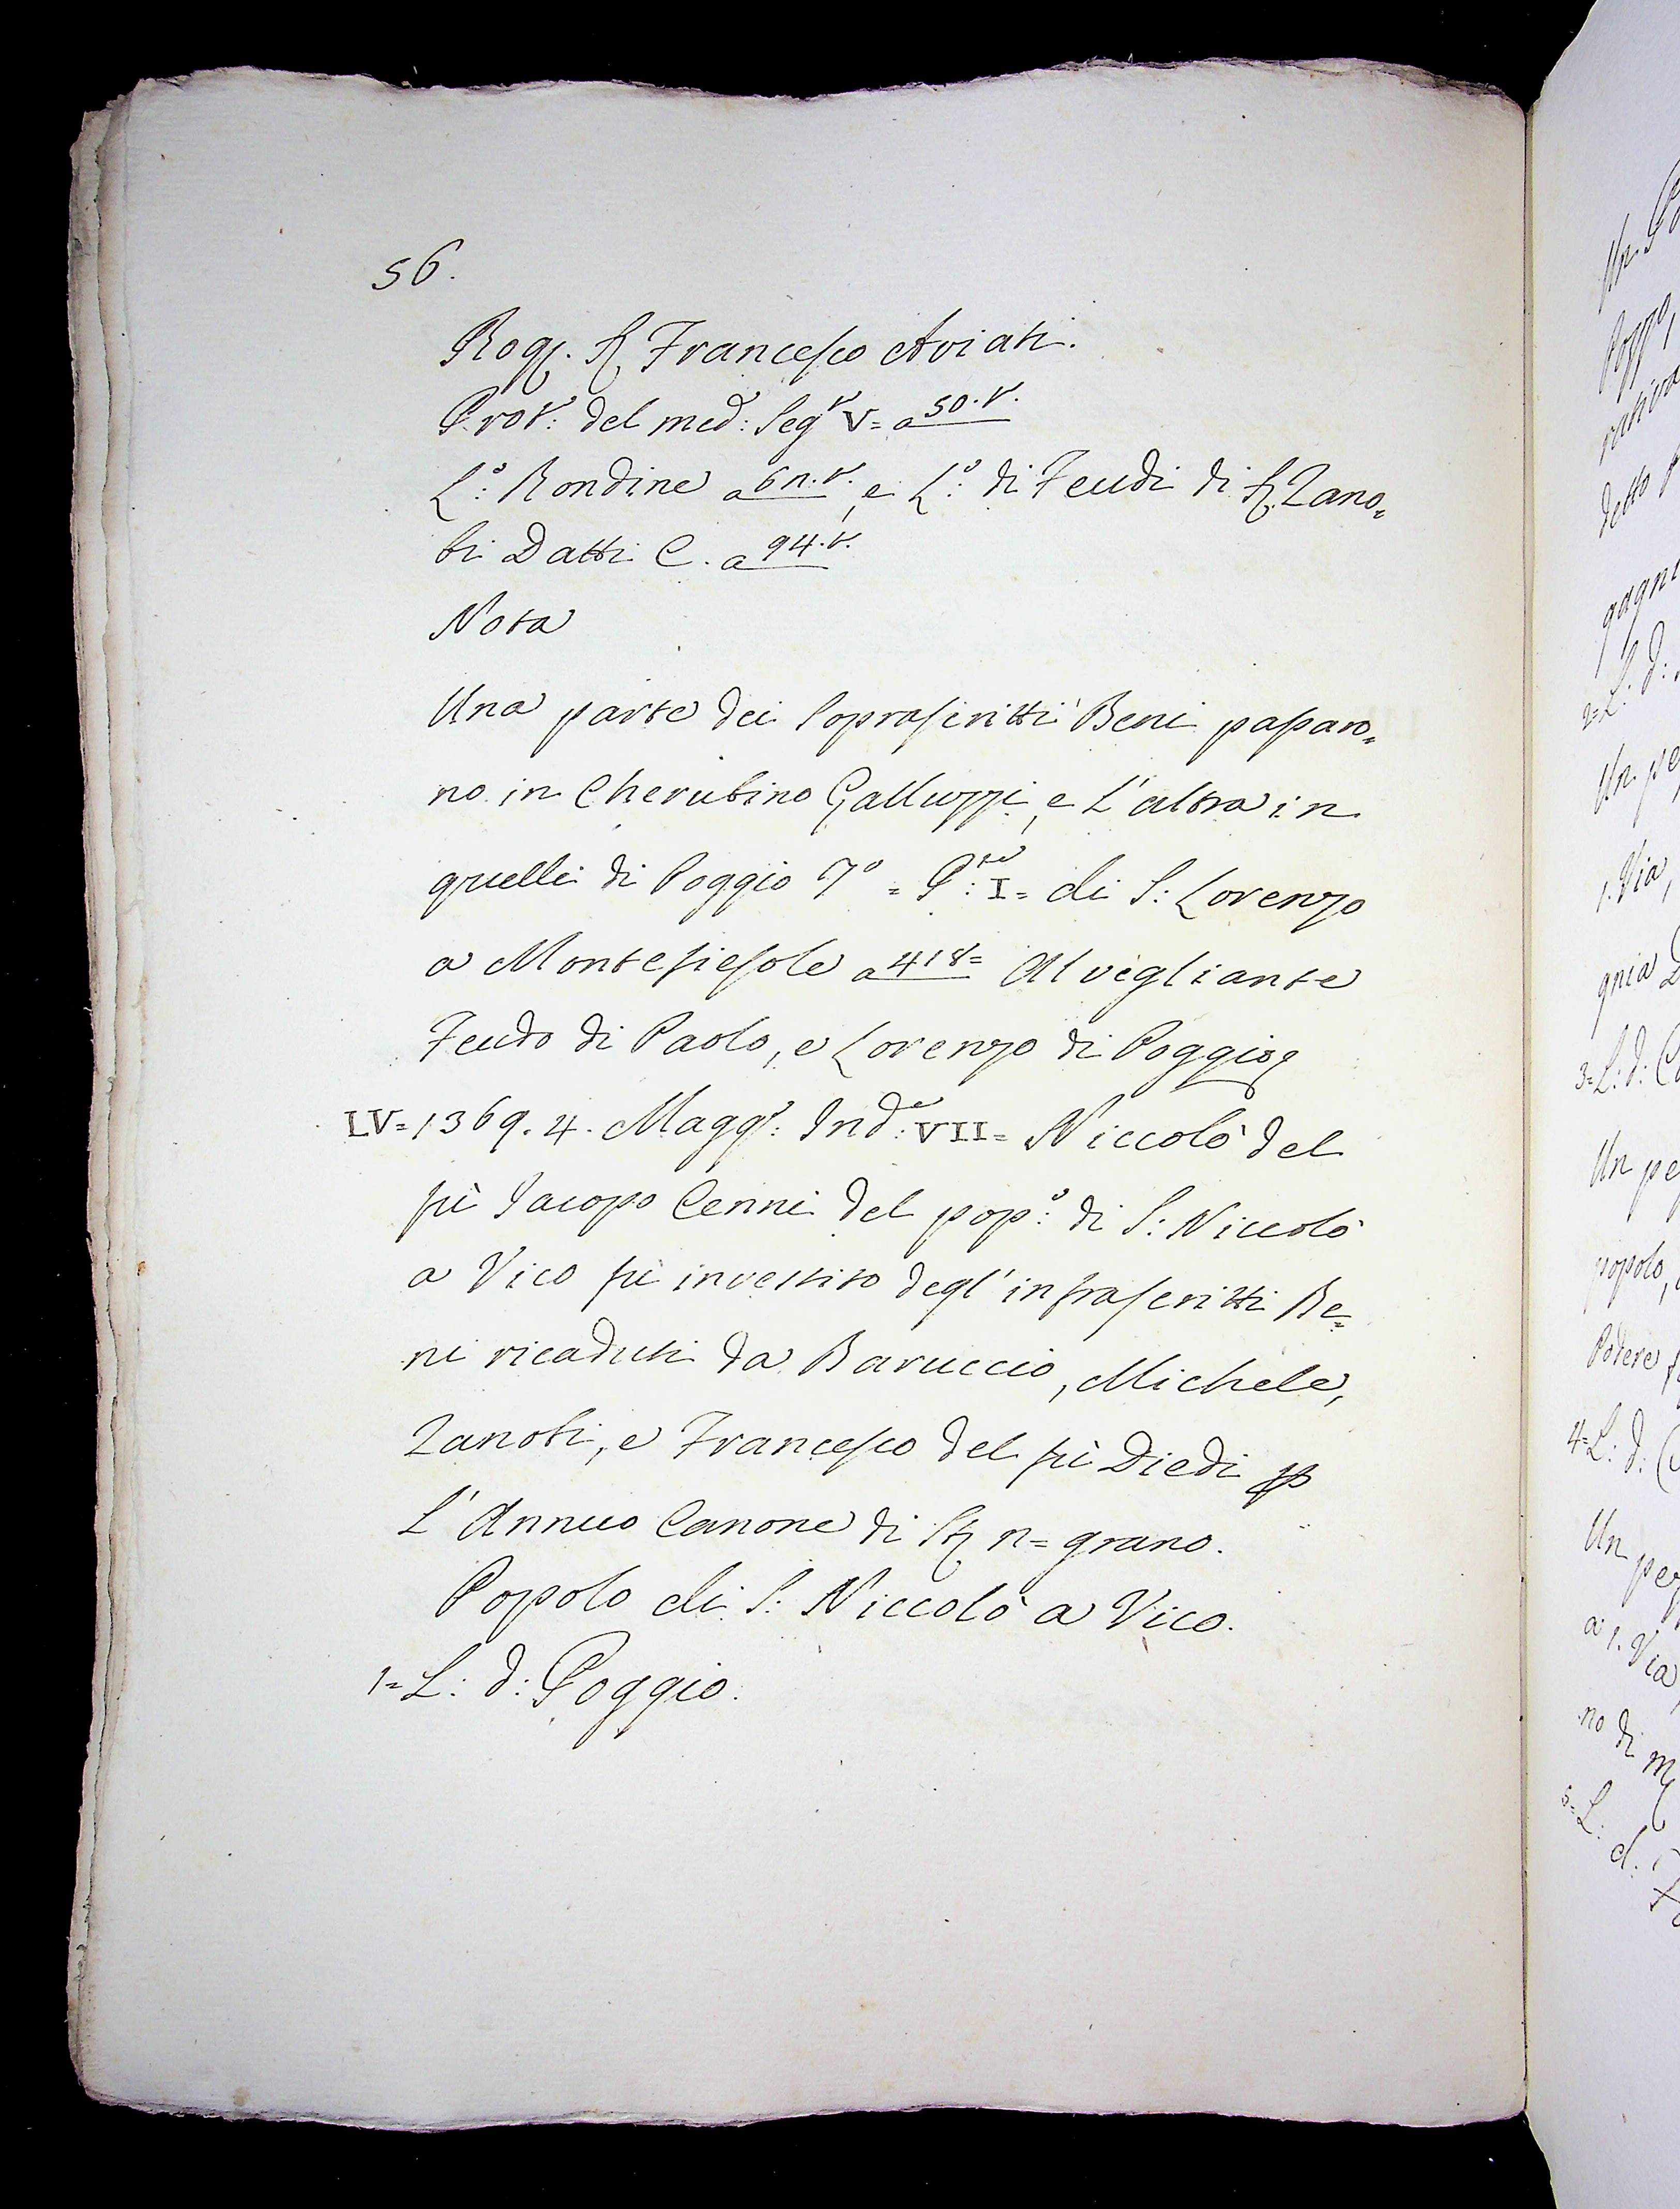 56.
Rog. S. Francesco Aviati.
Prot: del med: Seg V= a 50.v.
L:o Rondine a 6n.v., e L:o di Feudi di S. Zano=
bi Datti C. a 94.v.
Nota
Una parte dei soprascritti Beni passaro=
no in Cherubino Galluzzi, e L'altra in
quelli di Poggio 7o = P:te I= di S: Lorenzo
a Montefiesole a 418= Al vegliante
Feudo di Paolo, e Lorenzo di Poggio
LV= 1369. 4. Magg:o Ind:e VII= Niccolò del
fù Jacopo Cenni del pop:o di S: Niccolò
a Vico fù investito degl'infrascritti Be=
ni ricaduti da Baruccio, Michele,
Zanobi, e Francesco del fù Diedi p
L'Annuo Canone di St n= grano.
Popolo di S: Niccolò a Vico.
1= L: d: Poggio.
Un
Poggio,
detto
2= L: d:
Un pe
1. Via,
gnia
3= L: d:
Un pe
popolo,
Podere
4= L: d:
Un pez
a 1. Via
no di
5= L: d: